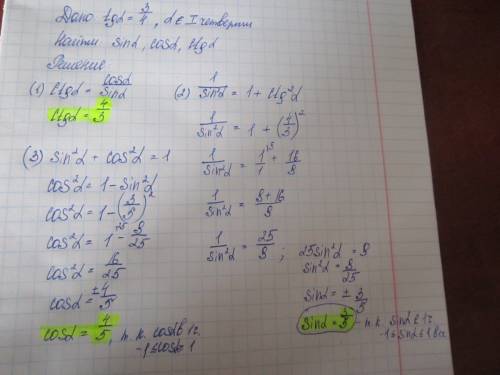 Дано tgα = 3/4, α ∈ I четверти
Найти: sinα, cosα, ctgα
Решение
(1) ctgα = cosα/sinα
ctgα = 4/3
(2) 1/sin²α = 1 + ctg²α
1/sin²α = 1 + (4/3)²
1/sin²α = 1/1 + 16/9
1/sin²α = 9+16/9
1/sin²α = 25/9 ; 25sin²α = 9
sin²α = 9/25
sinα = ± 3/5
sinα = 3/5 - т.к. sinα в 1ч.
-1 ≤ sinα ≤ 1
(3) sin²α + cos²α = 1
cos²α = 1 - sin²α
cos²α = 1 - (3/5)²
cos²α = 1 - 9/25
cos²α = 16/25
cosα = ±4/5
cosα = 4/5, т.к. cosα в 1ч.
-1 ≤ cosα ≤ 1